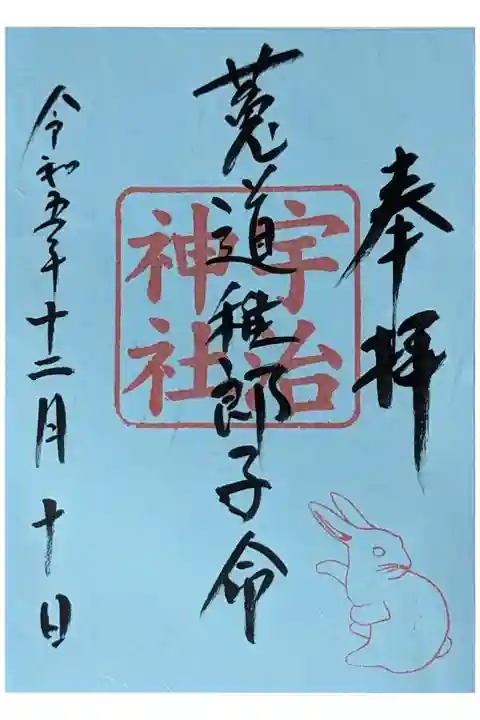 奉拝
宇治
神社
菟道稚郎子命
令和五年十二月十日